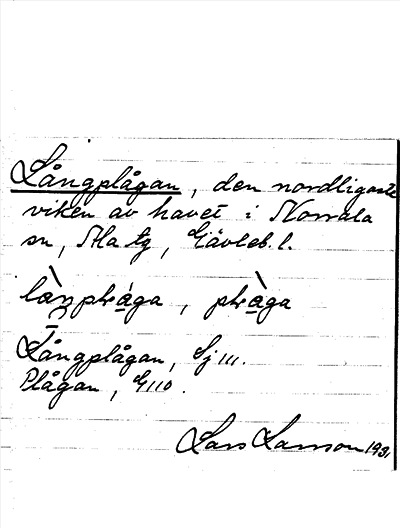 Långplågan, den nordligaste
viken av havet i Norrala
sn, Ala tg, Gävleb. l.
là̀ŋplɐága, plɐàga
Långplågan, Gj 111.
Plågan, G 110.
Lars Larsson 1931